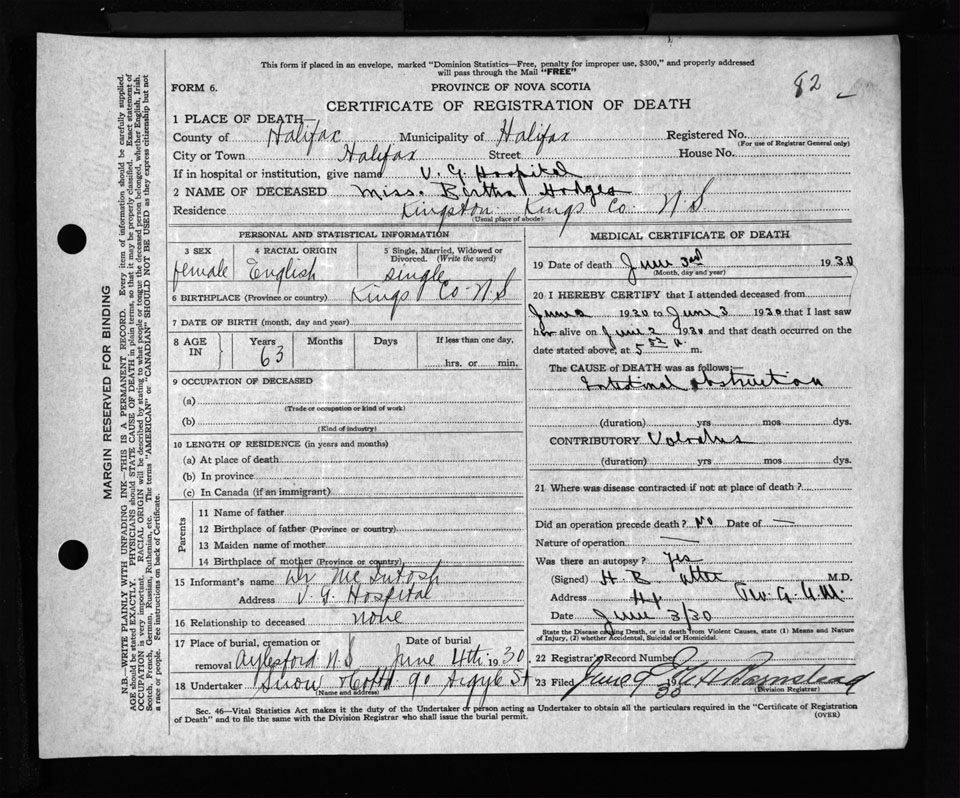 This form if placed in an envelope, marked "Dominion Statistics—Free, penalty for improper use, $300," and properly addressed
will pass through the Mail "FREE"
82
FORM 6.
PROVINCE OF NOVA SCOTIA
CERTIFICATE OF REGISTRATION OF DEATH
1 PLACE OF DEATH—
County of Halifax Municipality of Halifax Registered No.
(For use of Registrar General only)
City or Town Halifax Street House No.
If in hospital or institution, give name V. G. Hospital
2 NAME OF DECEASED Miss. Bertha Hodges
Residence Kingston Kings Co. N S
(Usual place of abode)
PERSONAL AND STATISTICAL INFORMATION
3 SEX 4 RACIAL ORIGIN 5 Single, Married, Widowed or
Divorced. (Write the word)
female English single
6 BIRTHPLACE (Province or country) Kings Co. N S
7 DATE OF BIRTH (month, day and year)
8 AGE IN Years Months Days If less than one day,
63 hrs. or min.
9 OCCUPATION OF DECEASED
(a)
(Trade or occupation or kind of work)
(b)
(Kind of industry)
10 LENGTH OF RESIDENCE (in years and months)
(a) At place of death
(b) In province
(c) In Canada (if an immigrant)
Parents
11 Name of father
12 Birthplace of father (Province or country)
13 Maiden name of mother
14 Birthplace of mother (Province or country)
15 Informant's name Dr McIntosh
Address V. G. Hospital
16 Relationship to deceased none
17 Place of burial, cremation or Date of burial
removal Aylesford N.S June 4th 1930
18 Undertaker Snow 90 Argyle St
(Name and address)
MEDICAL CERTIFICATE OF DEATH
19 Date of death June 3rd 1930
(Month, day and year)
20 I HEREBY CERTIFY that I attended deceased from
June 2 1930 to June 3 1930 that I last saw
her alive on June 2 1930 and that death occurred on
date stated above, at 5 a. m.
The CAUSE of DEATH was as follows:—
Intestinal obstruction
(duration) yrs mos dys.
CONTRIBUTORY Volvulus
(duration) yrs mos dys.
21 Where was disease contracted if not at place of death?
Did an operation precede death? No Date of —
Nature of operation —
Was there an autopsy? Yes
(Signed) H. B. M.D.
Address Hx
Date June 3/30
State the Disease causing Death, or in death from Violent Causes, state (1) Means and
Nature of Injury, (2) whether Accidental, Suicidal or Homicidal.
22 Registrar's Record Number
23 Filed June 30 Barnstead
(Division Registrar)
Sec. 46—Vital Statistics Act makes it the duty of the Undertaker or person acting as Undertaker to obtain all the particulars required in the "Certificate of Registration
of Death" and to file the same with the Division Registrar who shall issue the burial permit.
(OVER)
MARGIN RESERVED FOR BINDING
N.B.—WRITE PLAINLY WITH UNFADING INK—THIS IS A PERMANENT RECORD. Every item of information should be carefully supplied.
AGE should be stated EXACTLY. PHYSICIANS should STATE CAUSE OF DEATH in plain terms, so that it may be properly classified. Exact statement of
OCCUPATION is very important. RACIAL ORIGIN will be described by stating to what people or tongue the deceased person belonged, whether English, Irish,
Scotch, French, German, Russian, Ruthenian, etc. The terms "AMERICAN" or "CANADIAN" SHOULD NOT BE USED as they express citizenship but not
a race or people. See instructions on back of Certificate.